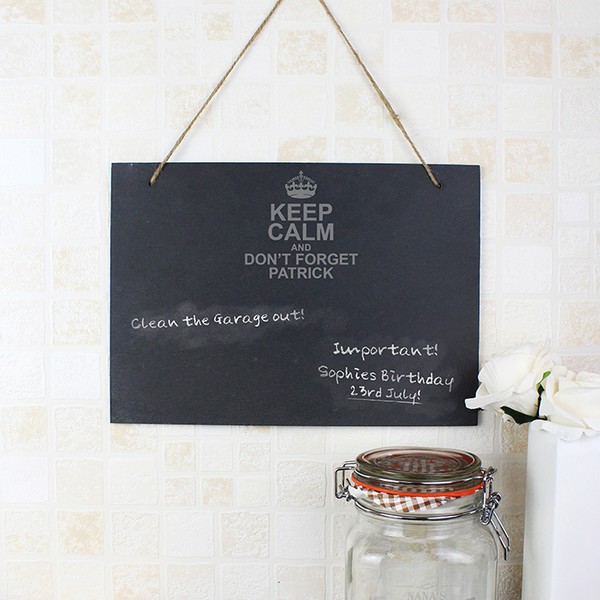 KEEP
CALM
AND
DON'T FORGET
PATRICK
Clean the Garage out!
Important!
Sophies Birthday
23rd July!
NANA'S